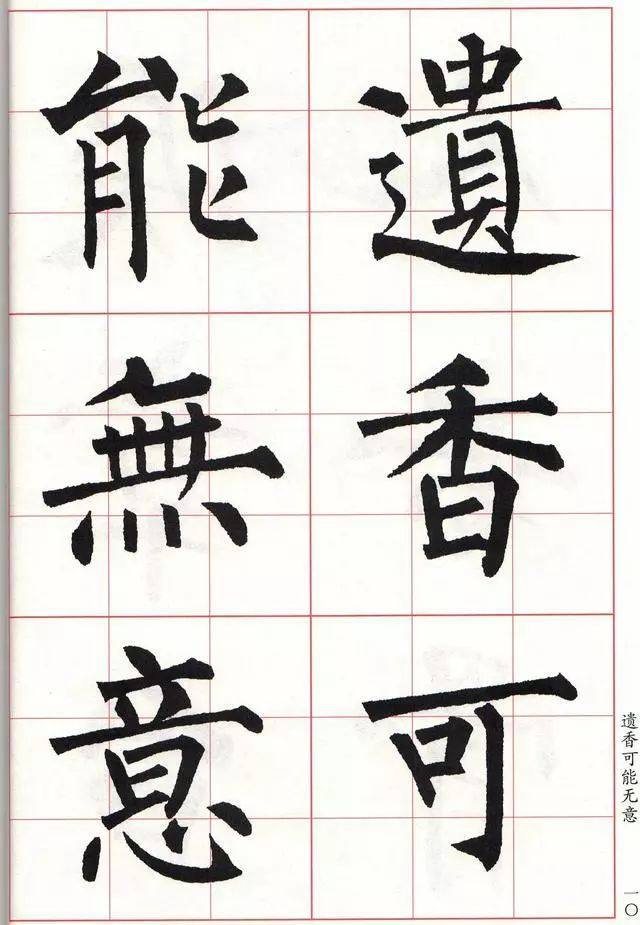 遺香可
能無意
遗香可能无意
一〇